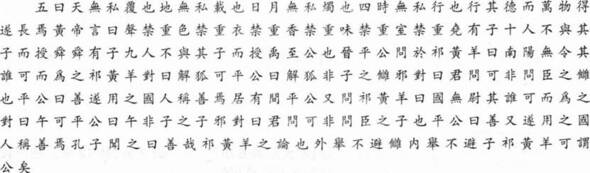 五曰天無私覆也地無私載也日月無私燭也四時無私行也行其德而萬物得
遂長焉黃帝言曰聲禁重色禁重衣禁重香禁重味禁重室禁重堯有子十人不與其
子而授舜舜有子九人不與其子而授禹至公也晉平公問於祁黃羊曰南陽無令其
誰可而為之祁黃羊對曰解狐可平公曰解狐非子之讎邪對曰君問可非問臣之讎
也平公曰善遂用之國人稱善焉居有間平公又問祁黃羊曰國無尉其誰可而為之
對曰午可平公曰午非子之子邪對曰君問可非問臣之子也平公曰善又遂用之國
人稱善焉孔子聞之曰善哉祁黃羊之論也外舉不避讎內舉不避子祁黃羊可謂
公矣